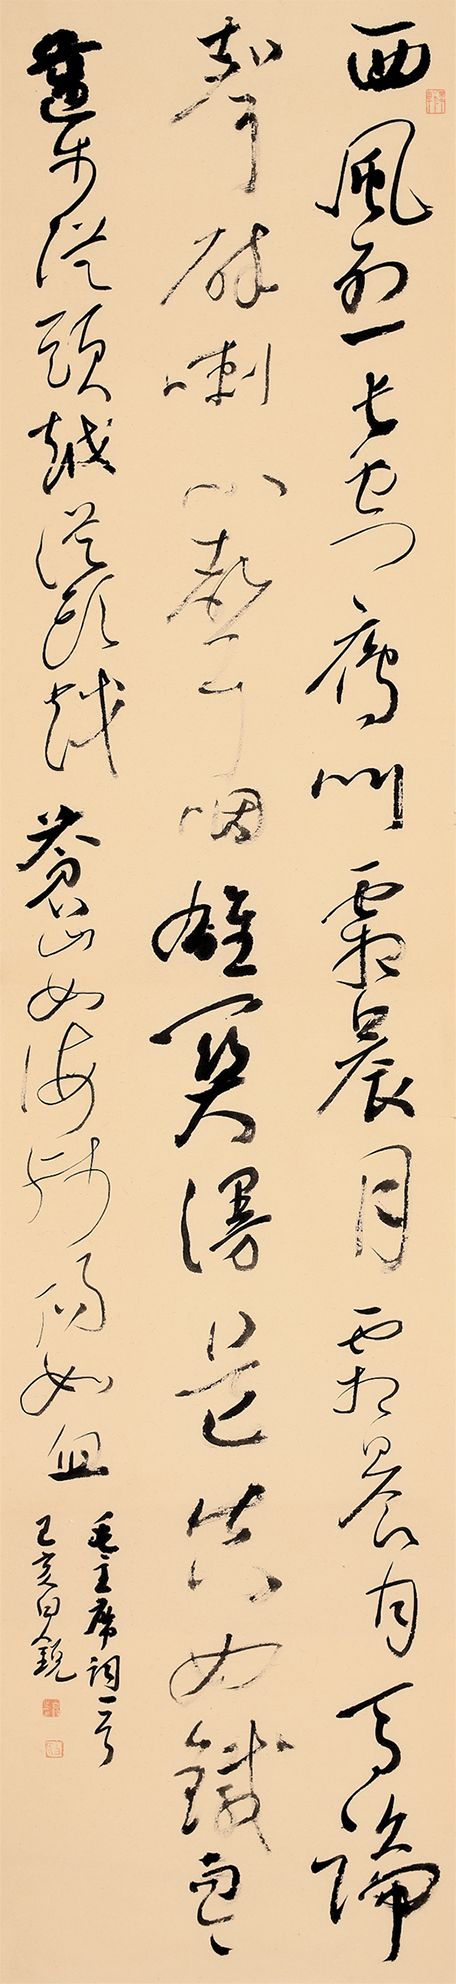 西風烈長空雁叫霜晨月霜晨月馬蹄
聲碎喇叭聲咽雄關漫道真如鐵而今
邁步從頭越從頭越蒼山如海殘陽如血
毛主席詞一首
己亥白銳